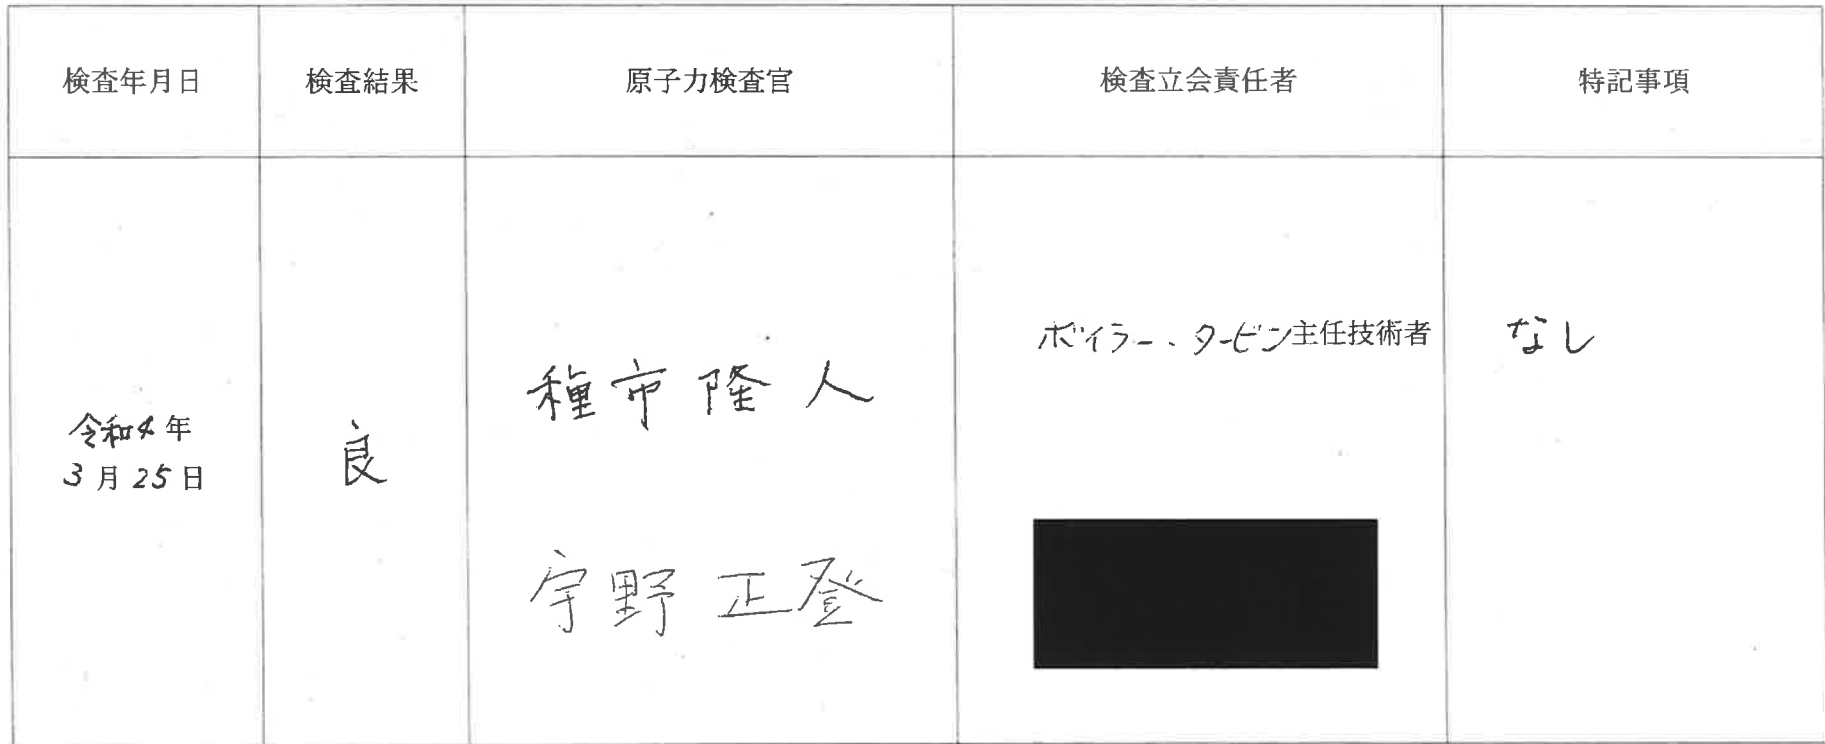 検査年月日 検査結果 原子力検査官 検査立会責任者 特記事項
令和4年
3月25日
良
種市隆人
宇野正登
ボイラー・タービン主任技術者
なし